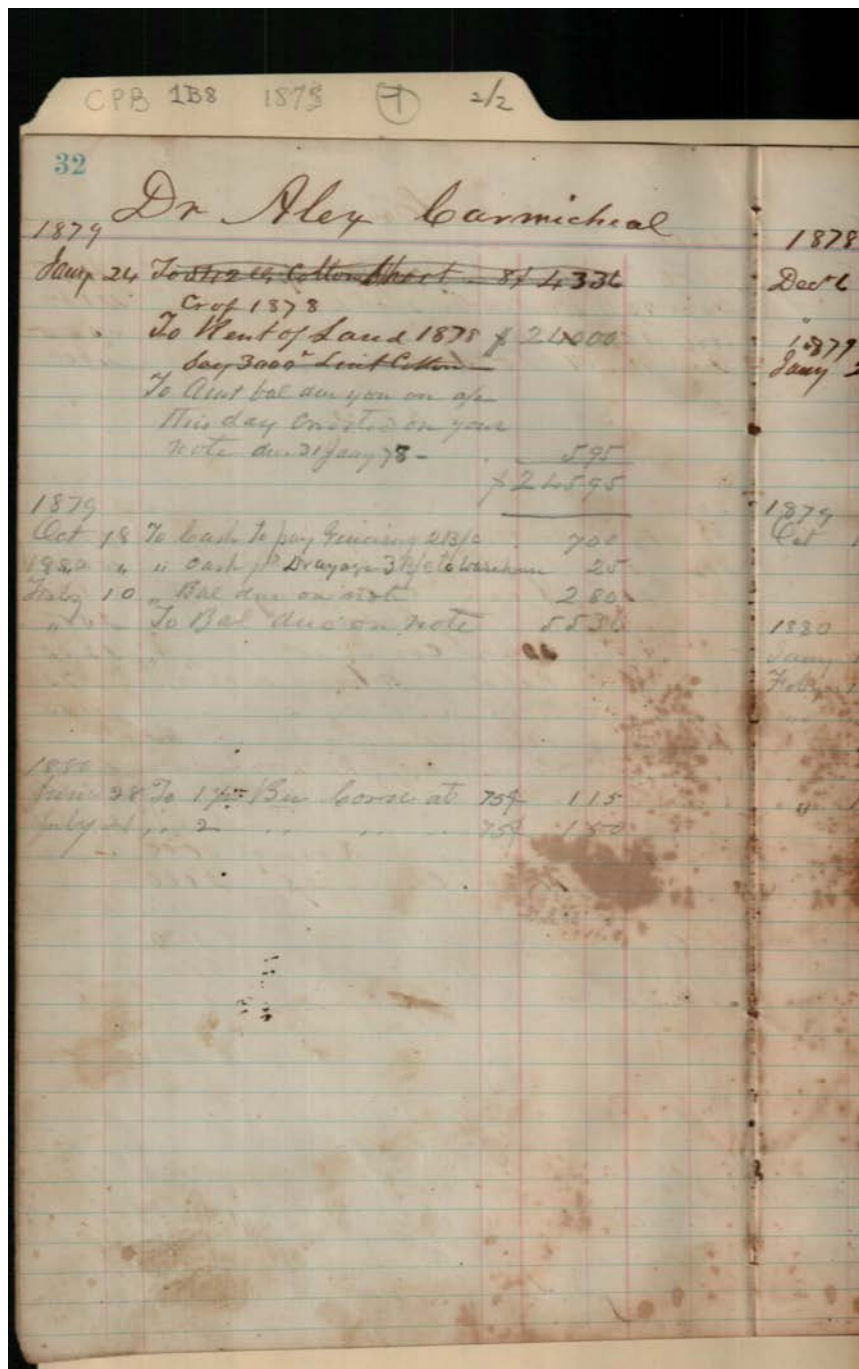 CPB 1B8 1879 7 2/2
32
Dr Alex Carmicheal
1879
Jany 24 To 542 lbs Cotton Short 8¢ 4336
Crop 1878
To Rent of Land 1878 $ 24000
Say 3000 Lint Cotton
To Amt bal due you on a/c
this day credited on your
note due 21 Jany 78 - 595
$ 24595
1879
Oct 18 To Cash to pay Ginning 2 B/C 700
1880 " " Cash pd Drayage 3 B/C to Warehouse 25
Feby 10 " Bal due on note 280
" " To Bal due on note 5536
1880
June 28 To Bu Corn at 75¢ 115
July 21 " 2 " " " 75¢ 150
1878
Dec 6
"
1879
Jany 2
1879
Oct 1
1880
Jany
Feby
"
" 1